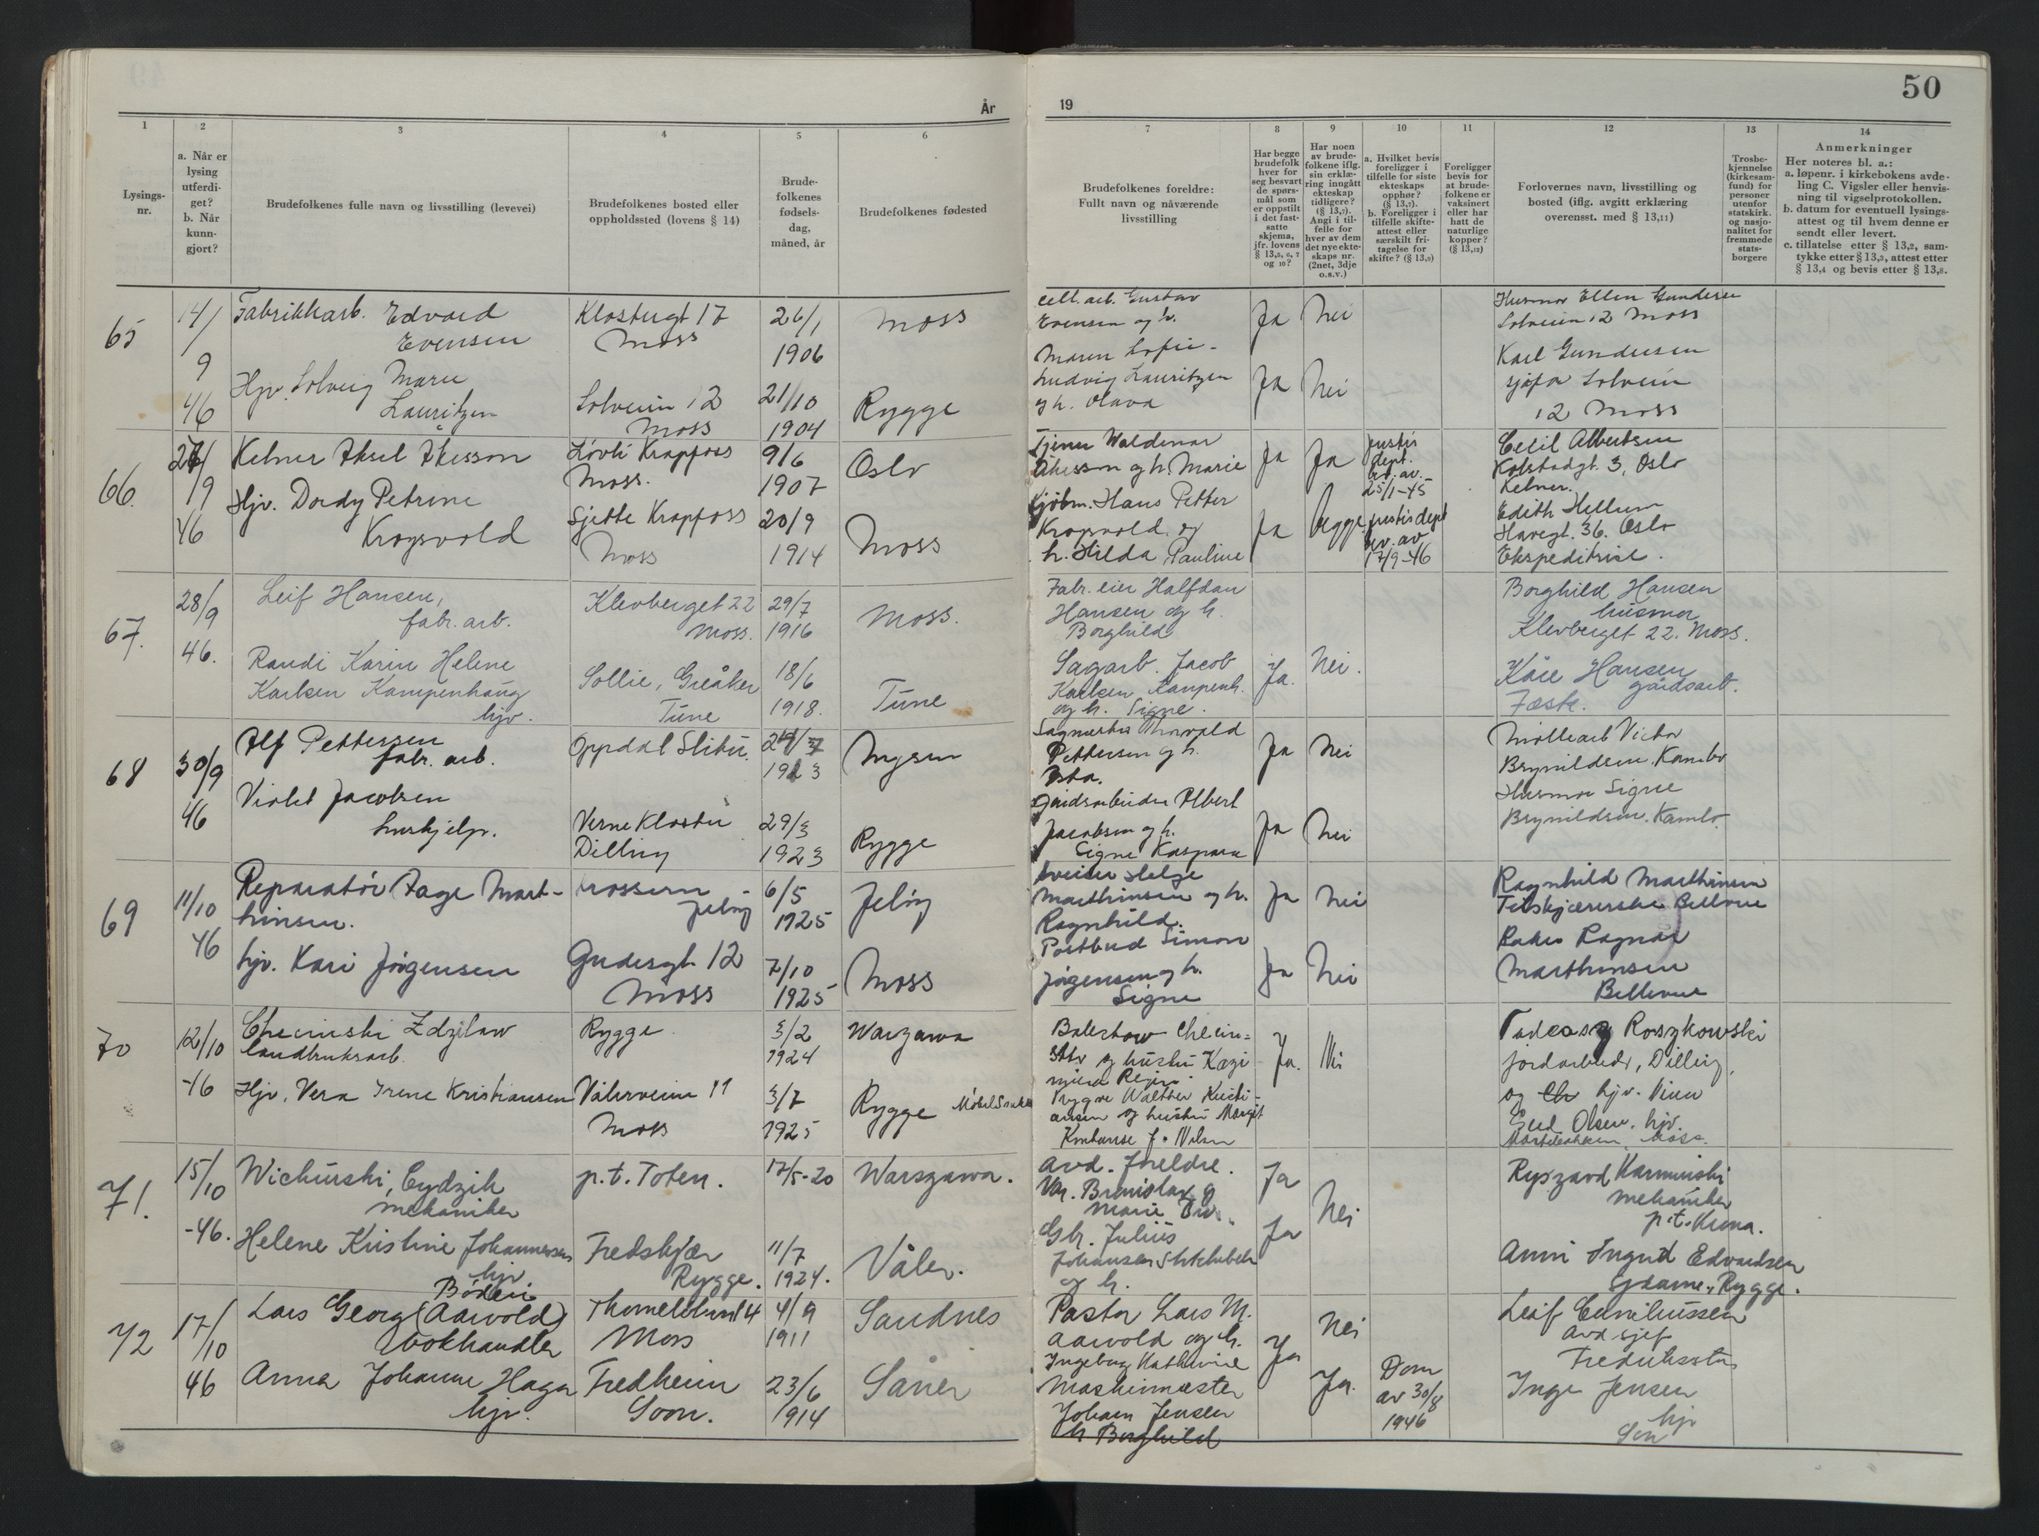 50
År 19
1
2
3
4
5
6
7
8
9
10
11
12
13
14
Lysings-
nr.
a. Når er
lysing
utferdi-
get?
b. Når
kunn-
gjort?
Brudefolkenes fulle navn og livsstilling (levevei)
Brudefolkenes bosted eller
oppholdssted (lovens § 14)
Brude-
folkenes
fødsels-
dag,
måned, år
Brudefolkenes fødested
Brudefolkenes foreldre:
Fullt navn og nåværende
livsstilling
Har begge
brudefolk
hver for
seg besvart
de spørs-
mål som
er oppstilt
i det fast-
satte
skjema,
jfr. lovens
§ 13,5, 6, 7
og 10?
Har noen
av brude-
folkene iflg.
sin erklæ-
ring inngått
ekteskap
tidligere?
(§ 13,7).
Angi i til-
felle for
hver av dem
det nye ekte-
skaps nr.
(2net, 3dje
o.s.v.)
a. Hvilket bevis
foreligger i
tilfelle for siste
ekteskaps
opphør?
(§ 13,7).
b. Foreligger i
tilfelle skifte-
attest eller
særskilt fri-
tagelse for
skifte? (§ 13,9)
Foreligger
bevis for
at brude-
folkene er
vaksinert
eller har
hatt de
naturlige
kopper?
(§ 13,12)
Forlovernes navn, livsstilling og
bosted (iflg. avgitt erklæring
overensst. med § 13,11)
Trosbe-
kjennelse
(kirkesam-
fund) for
personer
utenfor
statskirk.
og nasjo-
nalitet for
fremmede
stats-
borgere
Anmerkninger
Her noteres bl. a.:
a. løpenr. i kirkebokens avde-
ling C. Vigsler eller henvis-
ning til vigselprotokollen.
b. datum for eventuell lysings-
attest og til hvem denne er
sendt eller levert.
c. tillatelse etter § 13,2, sam-
tykke etter § 13,3, attest etter
§ 13,4 og bevis etter § 13,8.
65
14/
9
46
Fabrikkarb. Edvard
Evensen
Klostergt 17
Moss
26/1
1906
Moss
cell. arb. Gustav
Evensen og h.
Maren Sofie
Ja
Nei
Husmor Ellen Gundersen
Solveien 12 Moss
Hjv. Solveig Marie
Lauritzen
Solveien 12
Moss
21/10
1904
Rygge
Ludvig Lauritzen
og h. Olava
Ja
Nei
Karl Gundersen
sjåfør Solveien
12 Moss
66.
/9
46
Kelner Aksel Åkesson
Løvli Krapfoss
Moss.
9/6
1907
Oslo
Tjener Waldemar
Åkesson og h. Marie
Ja
Ja
justis
dept.
av.
25/1-45
Cecil Albertsen
Kolstadgt. 3, Oslo
Kelner.
Hjv. Dordy Petrine
Krogsvold
Sjette Krapfoss
Moss
20/9
1914
Moss
Kjøbm. Hans Petter
Krogsvold og
h. Hilda Pauline
Ja
Begge
justisdept
av
17/9-46
Edith Hellum
Havregt. 36. Oslo
Ekspeditrise.
67.
28/9
46.
Leif Hansen,
fabr. arb.
Klevberget 22
Moss.
29/7
1916
Moss.
Fabr. eier Halfdan
Hansen og h.
Borghild
Borghild Hansen
husmor
Klevberget 22. Moss.
Randi Karin Helene
Karlsen Kampenhaug
hjv.
Sollie, Greåker
Tune
18/6
1918.
Tune
Sagarb. Jacob
Karlsen Kampenh.
og h. Signe.
Ja.
Nei.
Kåre Hansen
gårdsarb.
68
30/9
46
Alf Pettersen
fabr. arb.
Oppdal Slitu.
1923
Mysen
Sagmester Thorvald
Pettersen og h.
Asta.
Ja
Nei
Møllearb Victor
Brynildsen. Kambo
Husmor Signe
Brynildsen. Kambo.
Violet Jacobsen
hushjelp.
Verne Kloster
Dilling
29/3
1923
Rygge
Gårdsarbeider Albert
Jacobsen og h.
Signe Kaspara
Ja
Nei
69
11/10
46
Reparatør Aage Mart-
hinsen.
Jeløy
6/5
1925
Jeløy
Helge
Marthinsen og h.
Ragnhild.
Ja
Nei
Ragnhild Marthinsen
Tilskjærerske Bellevue
hjv. Kari Jørgensen
Gudesgt 12
Moss
7/10
1925
Moss
Postbud Simon
Jørgensen og h.
Signe
Ja
Nei
Ragnar
Marthinsen
Bellevue
70
12/10
-46
Checinski Zdzilaw
landbruksarb.
Rygge
3/2
1924
Warzawa
og hustru Kazi
Ja.
Nei
Tadeasz Roszkowski
jordarbeider, Dilling,
og hjv.
Hjv, Vera Irene Kristiansen
Vålerveien 11
Moss
3/7
1925
Rygge
Trygve Walther Kristi-
ansen og hustru Margit
Konstanse f. Nilsen
Olsen. hjv.
71.
15/10
-46.
Wichurski, Cydzik
mekaniker
p.t. Toten.
17/5-20
Warszawa.
avd. foreldre.
Ja
Ryszard Karminski
mekaniker
Helene Kristine Johannessen
hjv.
Fredskjær
Rygge.
11/7
1924.
Våler.
Gbr. Julius
Johansen
og h.
Ja
Nei
Anni Ingrid Edvardsen
Rygge.
72
17/
/10
46
Lars Georg (Aarvold)
bokhandler
Moss
4/9
1911
Sandnes
Pastor Lars M.
Aarvold og h.
Ingeborg Kathrine
Ja
Nei
Leif Cornliussen
Avd sjef
Fredrikstad
Anna Johanne Haga
hjv.
Fredheim
Soon.
23/6
1914
Såner
Maskinmester
Johan Jensen
h Borghild
Ja.
Dom
av 30/8
1946
Inge Jensen
hjv
Son